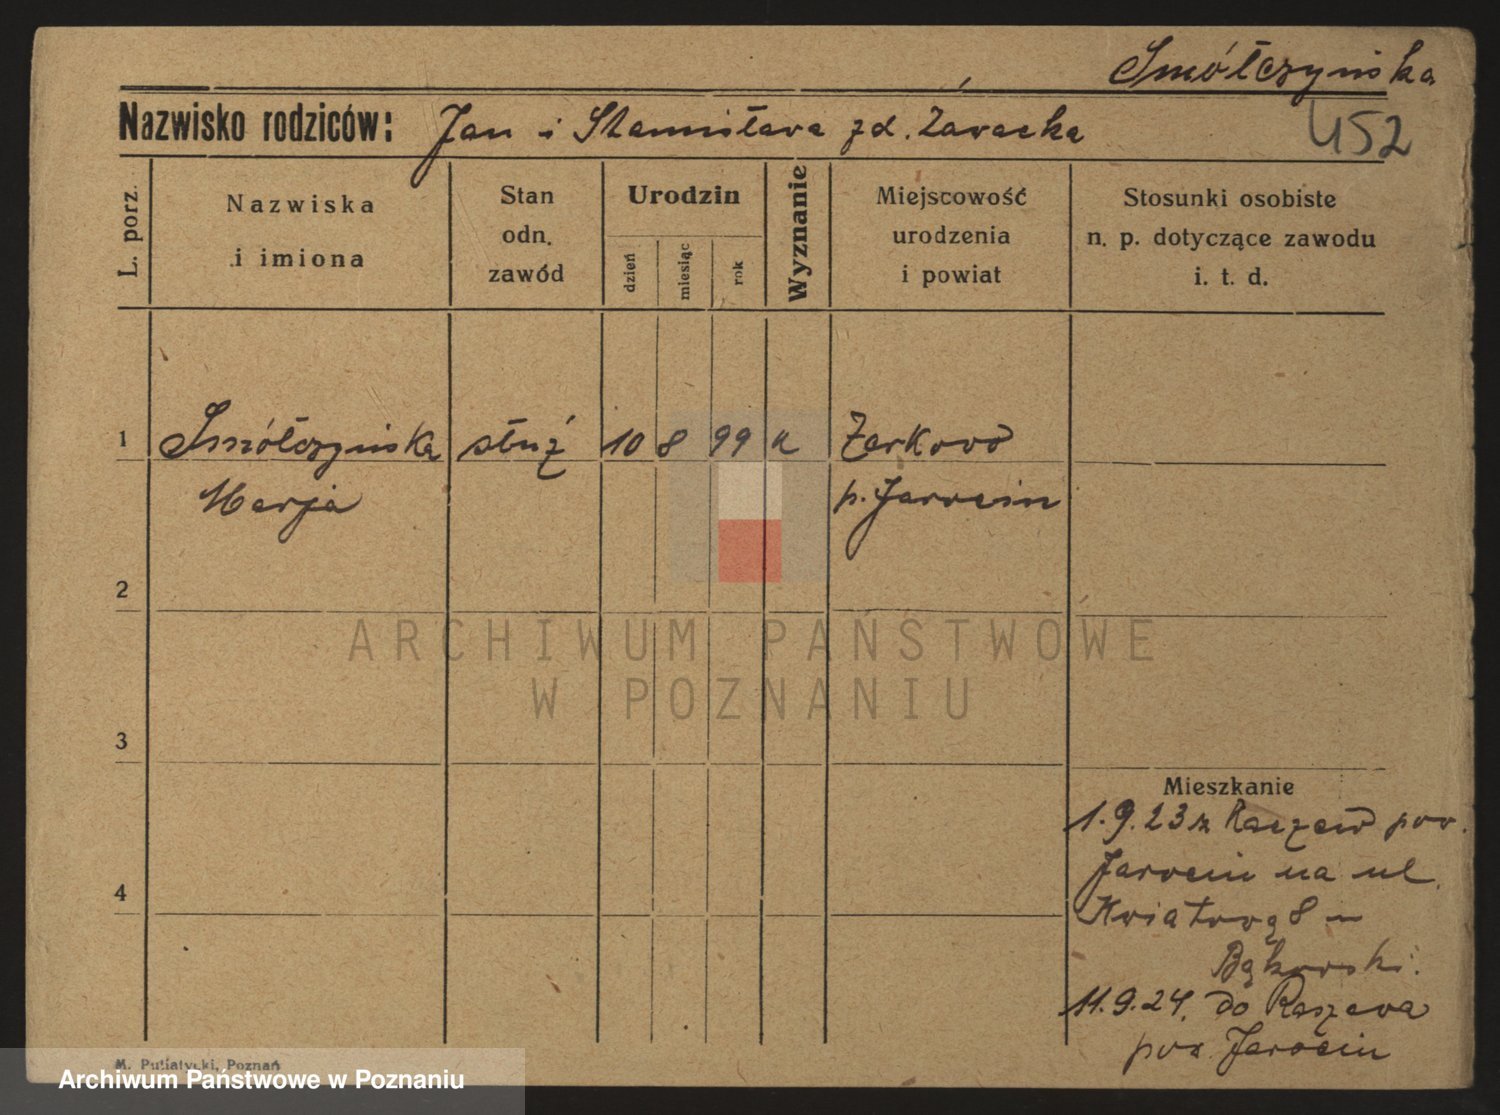 Smółczyńska
Nazwisko rodziców: Jan i Stanisława zd. Żávacka
452
L. porz.
Nazwiska
i imiona
Stan
odn.
zawód
Urodzin
dzień
miesiąc
rok
Wyznanie
Miejscowość
urodzenia
i powiat
Stosunki osobiste
n. p. dotyczące zawodu
i. t. d.
1 Smółczyńska służ 10 8 99 k Żerkow
Marja p. Jarocin
2
ARCHIWUM PAŃSTWOWE
W POZNANIU
3
Mieszkanie
1.9.23 z Raszew pow.
Jarocin na ul.
4
Kwiatową 8
Bąkowski.
11.9.24. do Raszewa
pow. Jarocin
M. Putiatycki, Poznań
Archiwum Państwowe w Poznaniu